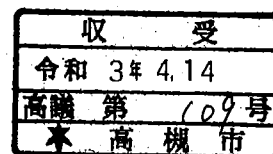 収 受
令和 3年 4.14
高議 第 109号
★ 高槻市